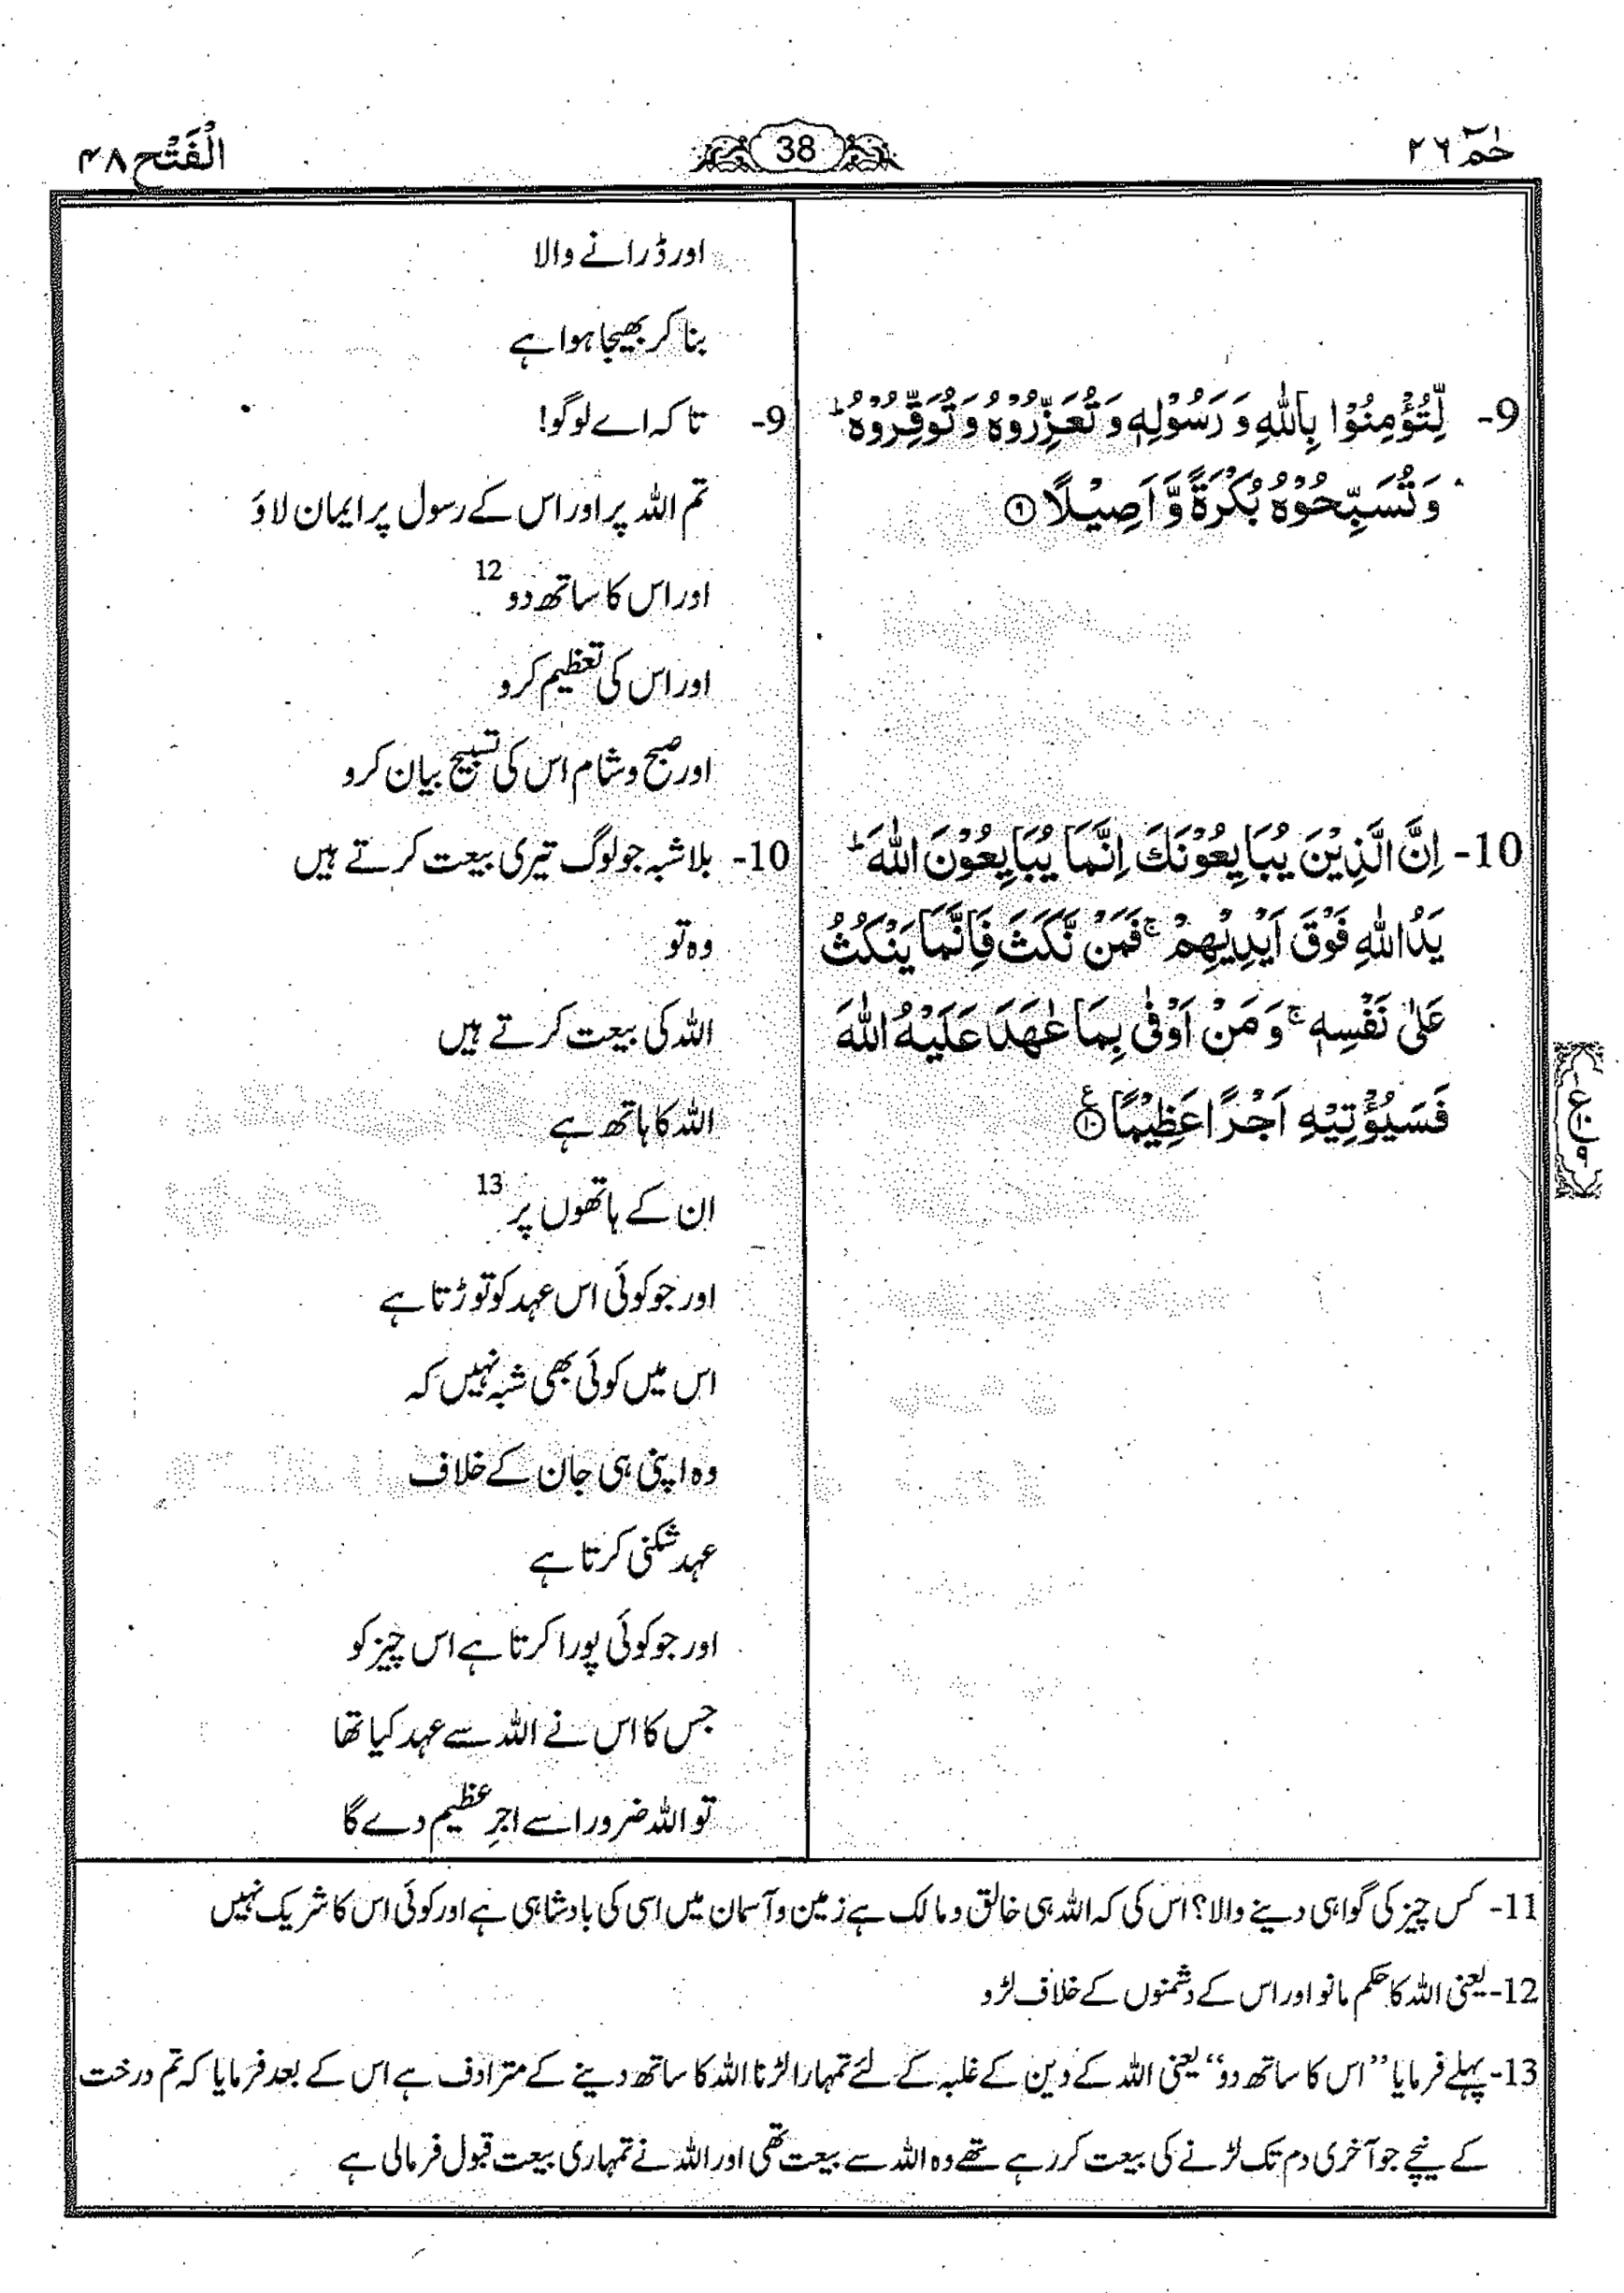 حٰمٓ ٢٦
38
الْفَتْح ٤٨
9- لِّتُؤْمِنُوْا بِاللّٰهِ وَ رَسُوْلِهٖ وَ تُعَزِّرُوْهُ وَ تُوَقِّرُوْهُ ؕ
وَ تُسَبِّحُوْهُ بُكْرَةً وَّ اَصِيْلًا ۹
10- اِنَّ الَّذِيْنَ يُبَايِعُوْنَكَ اِنَّمَا يُبَايِعُوْنَ اللّٰهَ ؕ
يَدُ اللّٰهِ فَوْقَ اَيْدِيْهِمْ ۚ فَمَنْ نَّكَثَ فَاِنَّمَا يَنْكُثُ
عَلٰى نَفْسِهٖ ۚ وَ مَنْ اَوْفٰى بِمَا عٰهَدَ عَلَيْهُ اللّٰهَ
فَسَيُؤْتِيْهِ اَجْرًا عَظِيْمًا ۱۰ ع
اور ڈرانے والا
بنا کر بھیجا ہوا ہے
9- تا کہ اے لوگو!
تم اللہ پر اور اس کے رسول پر ایمان لاؤ
اور اس کا ساتھ دو 12
اور اس کی تعظیم کرو
اور صبح و شام اس کی تسبیح بیان کرو
10- بلاشبہ جو لوگ تیری بیعت کرتے ہیں
وہ تو
اللہ کی بیعت کرتے ہیں
اللہ کا ہاتھ ہے
ان کے ہاتھوں پر 13
اور جو کوئی اس عہد کو توڑتا ہے
اس میں کوئی بھی شبہ نہیں کہ
وہ اپنی ہی جان کے خلاف
عہد شکنی کرتا ہے
اور جو کوئی پورا کرتا ہے اس چیز کو
جس کا اس نے اللہ سے عہد کیا تھا
تو اللہ ضرور اسے اجرِ عظیم دے گا
11- کس چیز کی گواہی دینے والا؟ اس کی کہ اللہ ہی خالق و مالک ہے زمین و آسمان میں اسی کی بادشاہی ہے اور کوئی اس کا شریک نہیں
12- یعنی اللہ کا حکم مانو اور اس کے دشمنوں کے خلاف لڑو
13- پہلے فرمایا ”اس کا ساتھ دو“ یعنی اللہ کے دین کے غلبہ کے لئے تمہارا لڑنا اللہ کا ساتھ دینے کے مترادف ہے اس کے بعد فرمایا کہ تم درخت
کے نیچے جو آخری دم تک لڑنے کی بیعت کر رہے تھے وہ اللہ سے بیعت تھی اور اللہ نے تمہاری بیعت قبول فرمالی ہے